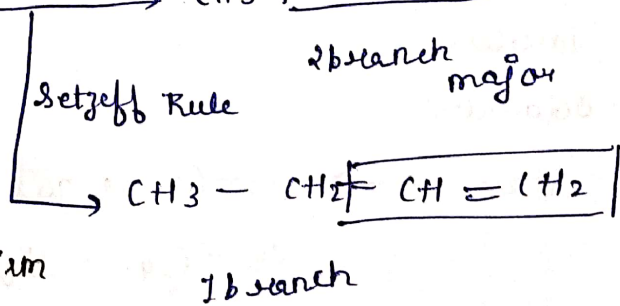 2branch
major
Setzeff Rule
CH3 — CH2 — CH = CH2
1branch